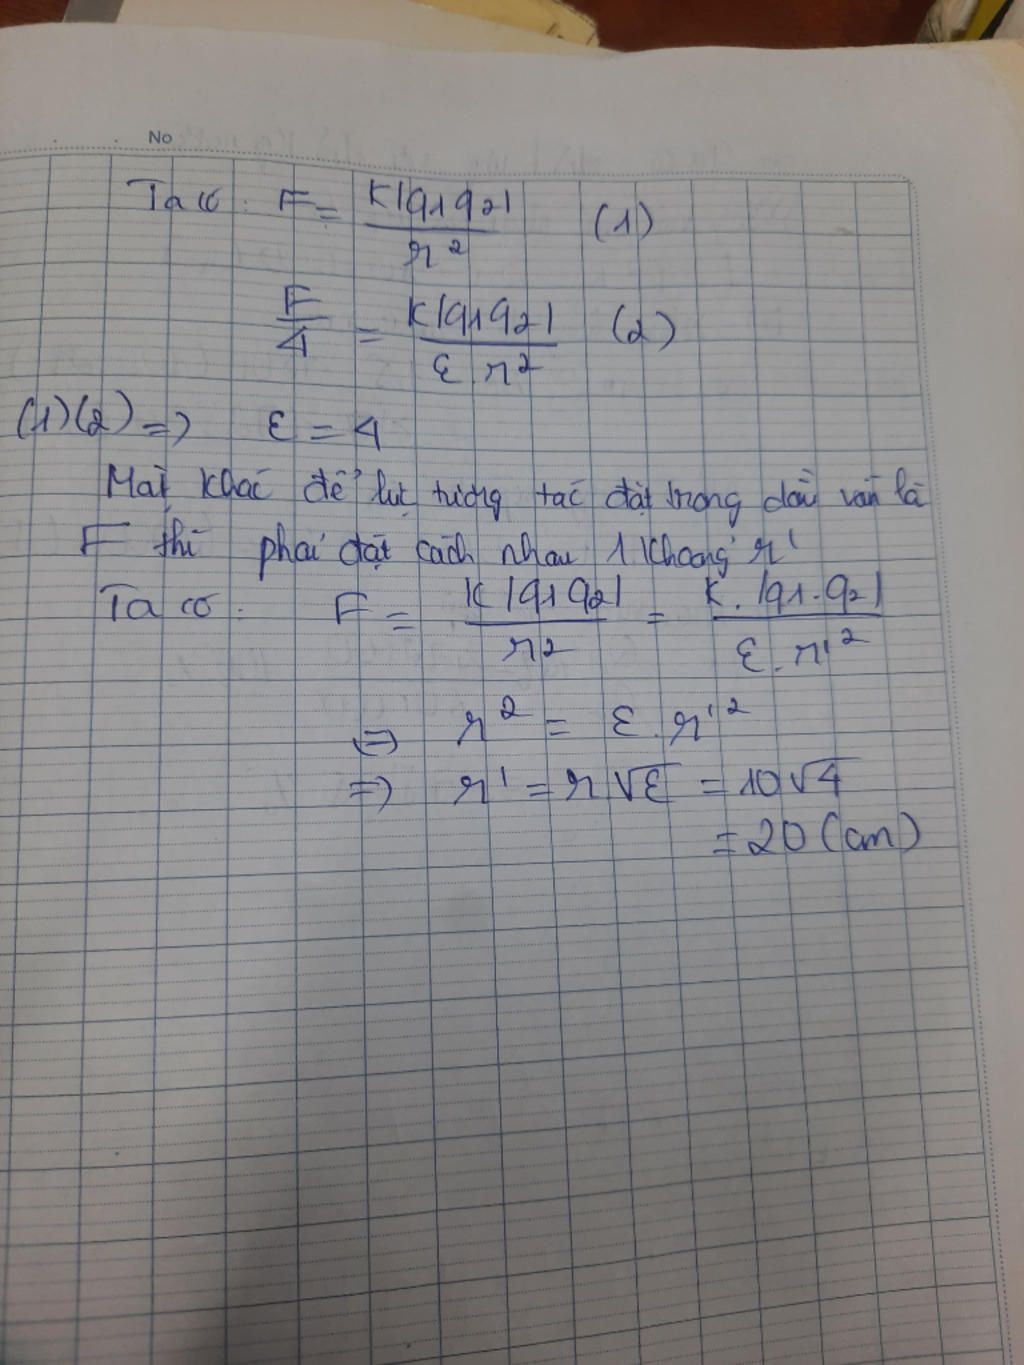 No
Ta có : F = K|q1q2| / r² (1)
F/4 = K|q1q2| / ε r² (2)
(1)(2) => ε = 4
Mặt khác để lực tương tác đặt trong dầu vẫn là
F thì phải đặt cách nhau 1 khoảng r'
Ta có : F = K|q1q2| / r2 = K.|q1.q2| / ε.r'²
<=> r² = ε.r'²
=> r' = r√ε = 10√4
= 20 (cm)